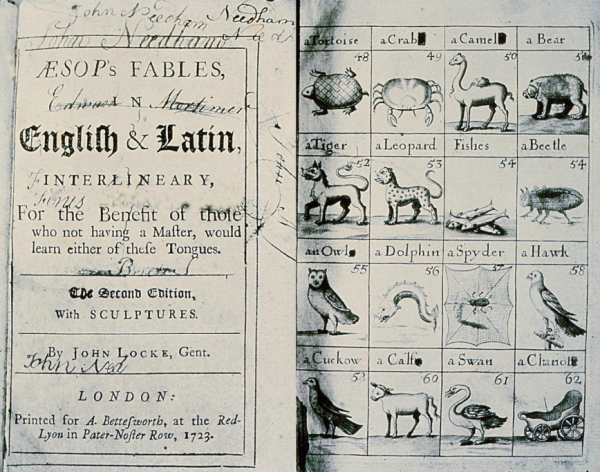 John Needham
John Needham
ÆSOP's FABLES,
Edward IN Mortimer
Engliſh & Latin,
INTERLINEARY,
For the Benefit of thoſe
who not having a Maſter, would
learn either of theſe Tongues.
The Second Edition,
With SCULPTURES.
By JOHN LOCKE, Gent.
John Ned
LONDON:
Printed for A. Betteſworth, at the Red-
Lyon in Pater-Noſter Row, 1723.
a Tortoise a Crab a Camel a Bear
48 49 50
a Tiger a Leopard Fishes a Beetle
52 53 54 54
an Owl a Dolphin a Spyder a Hawk
55 56 57 58
a Cuckow a Calf a Swan a Chariot
60 61 62